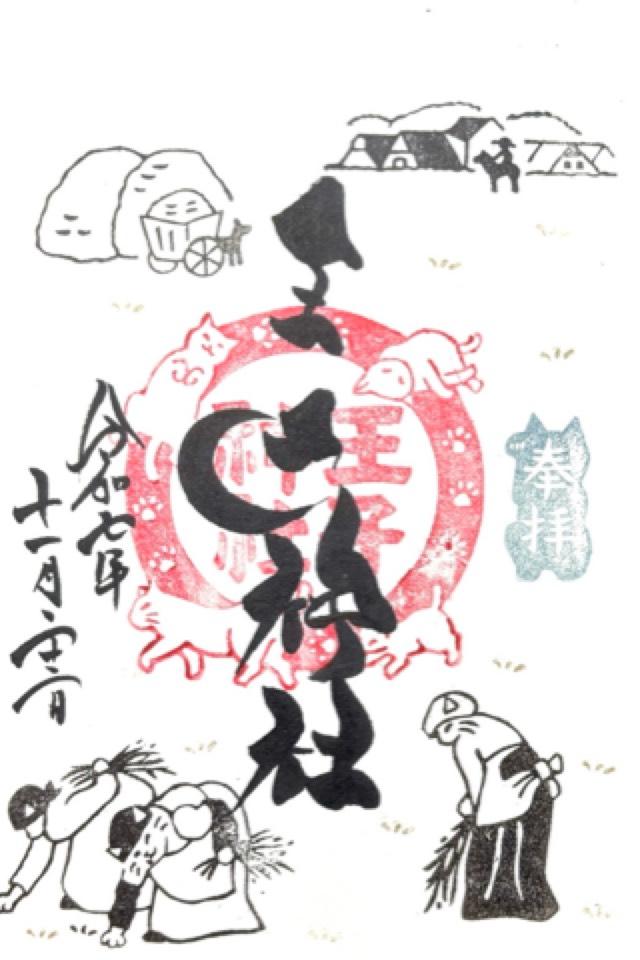 奉拝
王子神社
王子
神社
令和七年
十一月二十二日